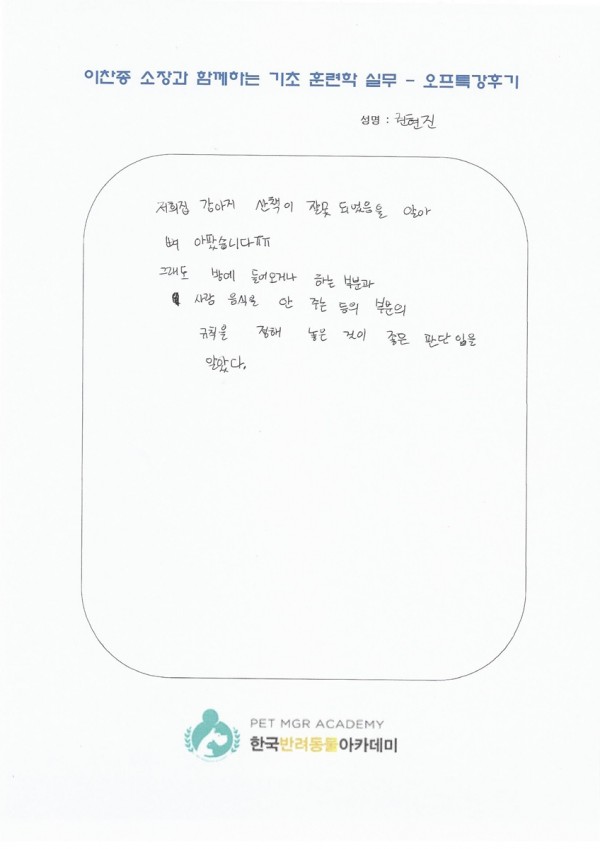 이찬종 소장과 함께하는 기초 훈련학 실무 - 오프특강후기
성명 : 권현진
저희집 강아지 산책이 잘못 되었음을 알아
뼈 아팠습니다ㅠㅠ
그래도 방에 들어오거나 하는 부분과
사람 음식을 안 주는 등의 부분의
규칙을 정해 놓은 것이 좋은 판단 임을
알았다.
PET MGR ACADEMY
한국반려동물아카데미